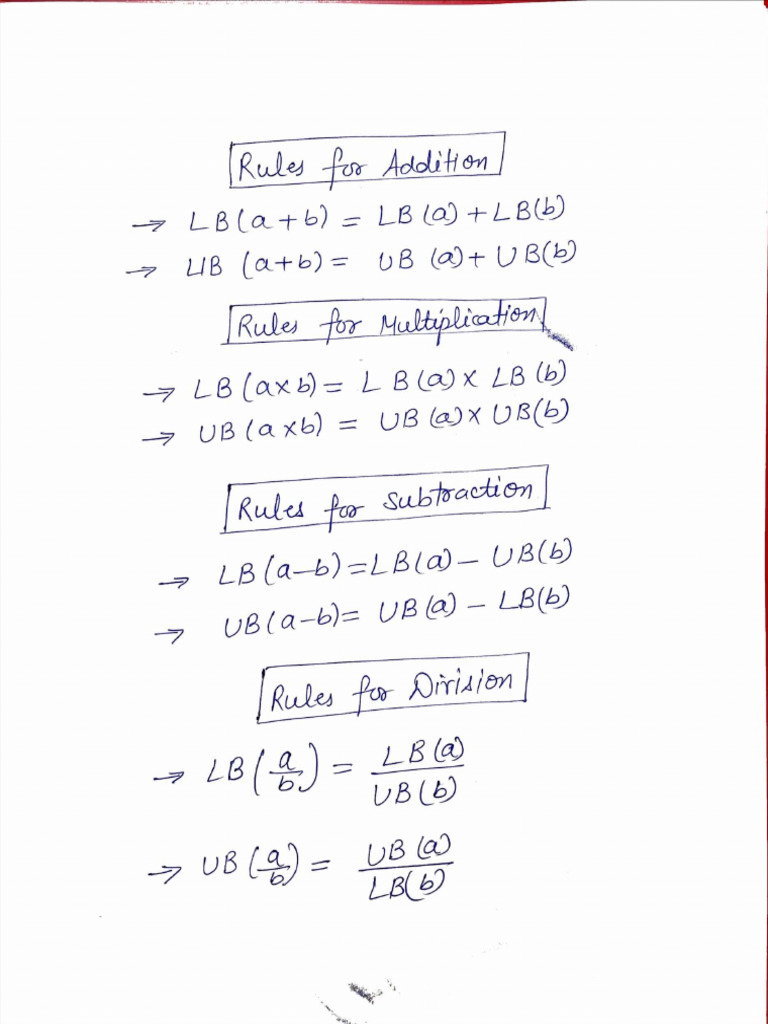 Rules for Addition
→ LB(a+b) = LB(a)+LB(b)
→ UB (a+b) = UB (a)+ UB(b)
Rules for Multiplication
→ LB(a×b) = L B(a)× LB(b)
→ UB(a×b) = UB(a)× UB(b)
Rules for Subtraction
→ LB(a-b)=LB(a)- UB(b)
→ UB(a-b)= UB(a) - LB(b)
Rules for Division
→ LB(a/b) = LB(a)/UB(b)
→ UB(a/b) = UB(a)/LB(b)